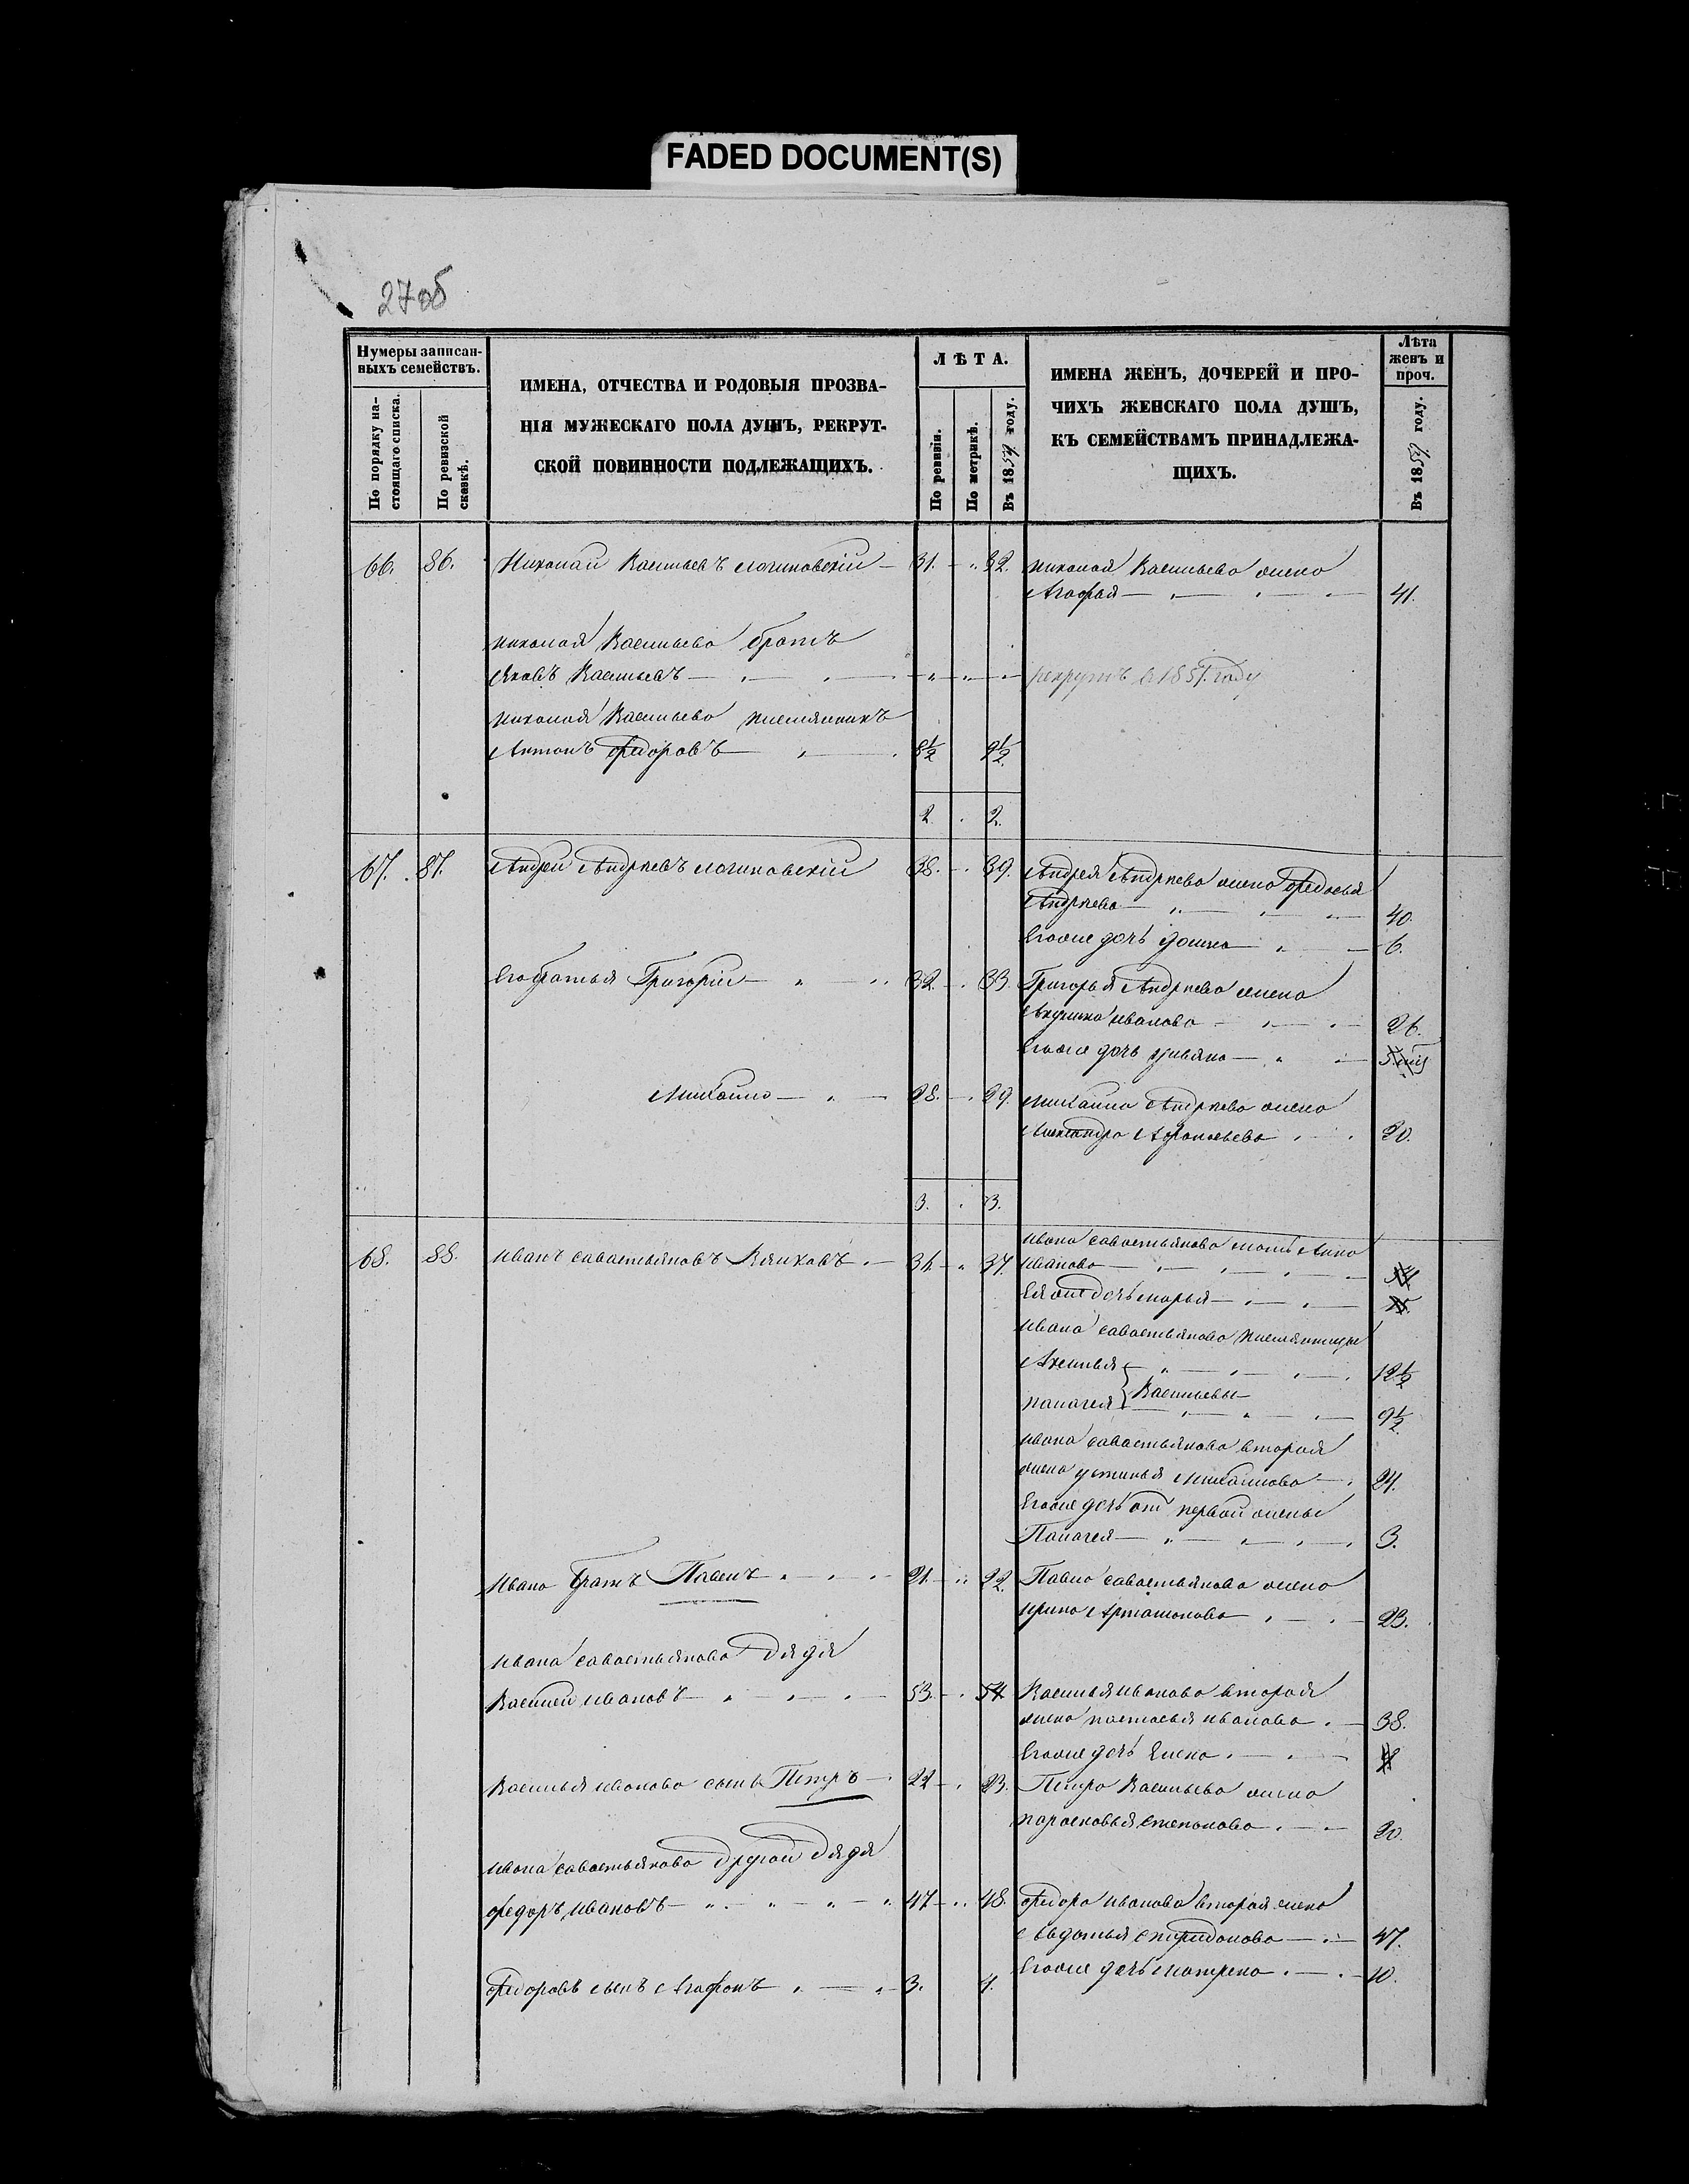 FADED DOCUMENT(S)
27 об
Нумеры записан-
ныхъ семействъ.
По порядку на-
стоящаго списка.
По ревизской
сказкѣ.
ИМЕНА, ОТЧЕСТВА И РОДОВЫЯ ПРОЗВА-
НІЯ МУЖЕСКАГО ПОЛА ДУШЪ, РЕКРУТ-
СКОЙ ПОВИННОСТИ ПОДЛЕЖАЩИХЪ.
ЛѢТА.
По ревизіи.
По метрикѣ.
Въ 1851 году.
ИМЕНА ЖЕНЪ, ДОЧЕРЕЙ И ПРО-
ЧИХЪ ЖЕНСКАГО ПОЛА ДУШЪ,
КЪ СЕМЕЙСТВАМЪ ПРИНАДЛЕЖА-
ЩИХЪ.
Лѣта
женъ и
проч.
Въ 1851 году.
66. 86. Николай Васильевъ Логиновскій 31. 32. Николая Васильева жена
Агафья 41.
Николая Васильева братъ
Яковъ Васильевъ рекрутъ в 1851. году
Николая Васильева племянникъ
Антонъ Федоровъ 8½ 9½
2 2.
67. 87. Андрей Андреевъ Логиновскій 38. 39. Андрея Андреева жена Федосья
Андреева 40.
Егоже дочь 6.
Его братья Григорій 32. 33. Григорья Андреева жена
Иванова 26.
Егоже дочь Ульяна
Михайло 28. 29. Михайла Андреева жена
Александра Афонасьева 20.
3. 3.
68. 88. Иванъ Савастьяновъ 36 37. Ивана Савастьянова мать Анна
Иванова
Ея же дочь Марья
Ивана Савастьянова племянницы
Аксинья 12½
Васильевы
Палагея 9½
Ивана Савастьянова вторая
жена Устинья Михайлова 24.
Егоже дочь от первой жены
Палагея 3.
Ивана братъ Павелъ 21. 22. Павла Савастьянова жена
Ирина Артамонова 23.
Ивана Савастьянова дядя
Василей Ивановъ 53. 54 Василья Иванова вторая
жена Настасья Иванова 38.
Егоже дочь Елена
Василья Иванова сынъ Петръ 22 23. Петра Васильева жена
Парасковья Степанова 20.
Ивана Савастьянова другой дядя
Федоръ Ивановъ 47 48. Федора Иванова вторая жена
Авдотья Спиридонова 47.
Егоже дочь Матрена 10.
Федоровъ сынъ Агафонъ 3. 4.